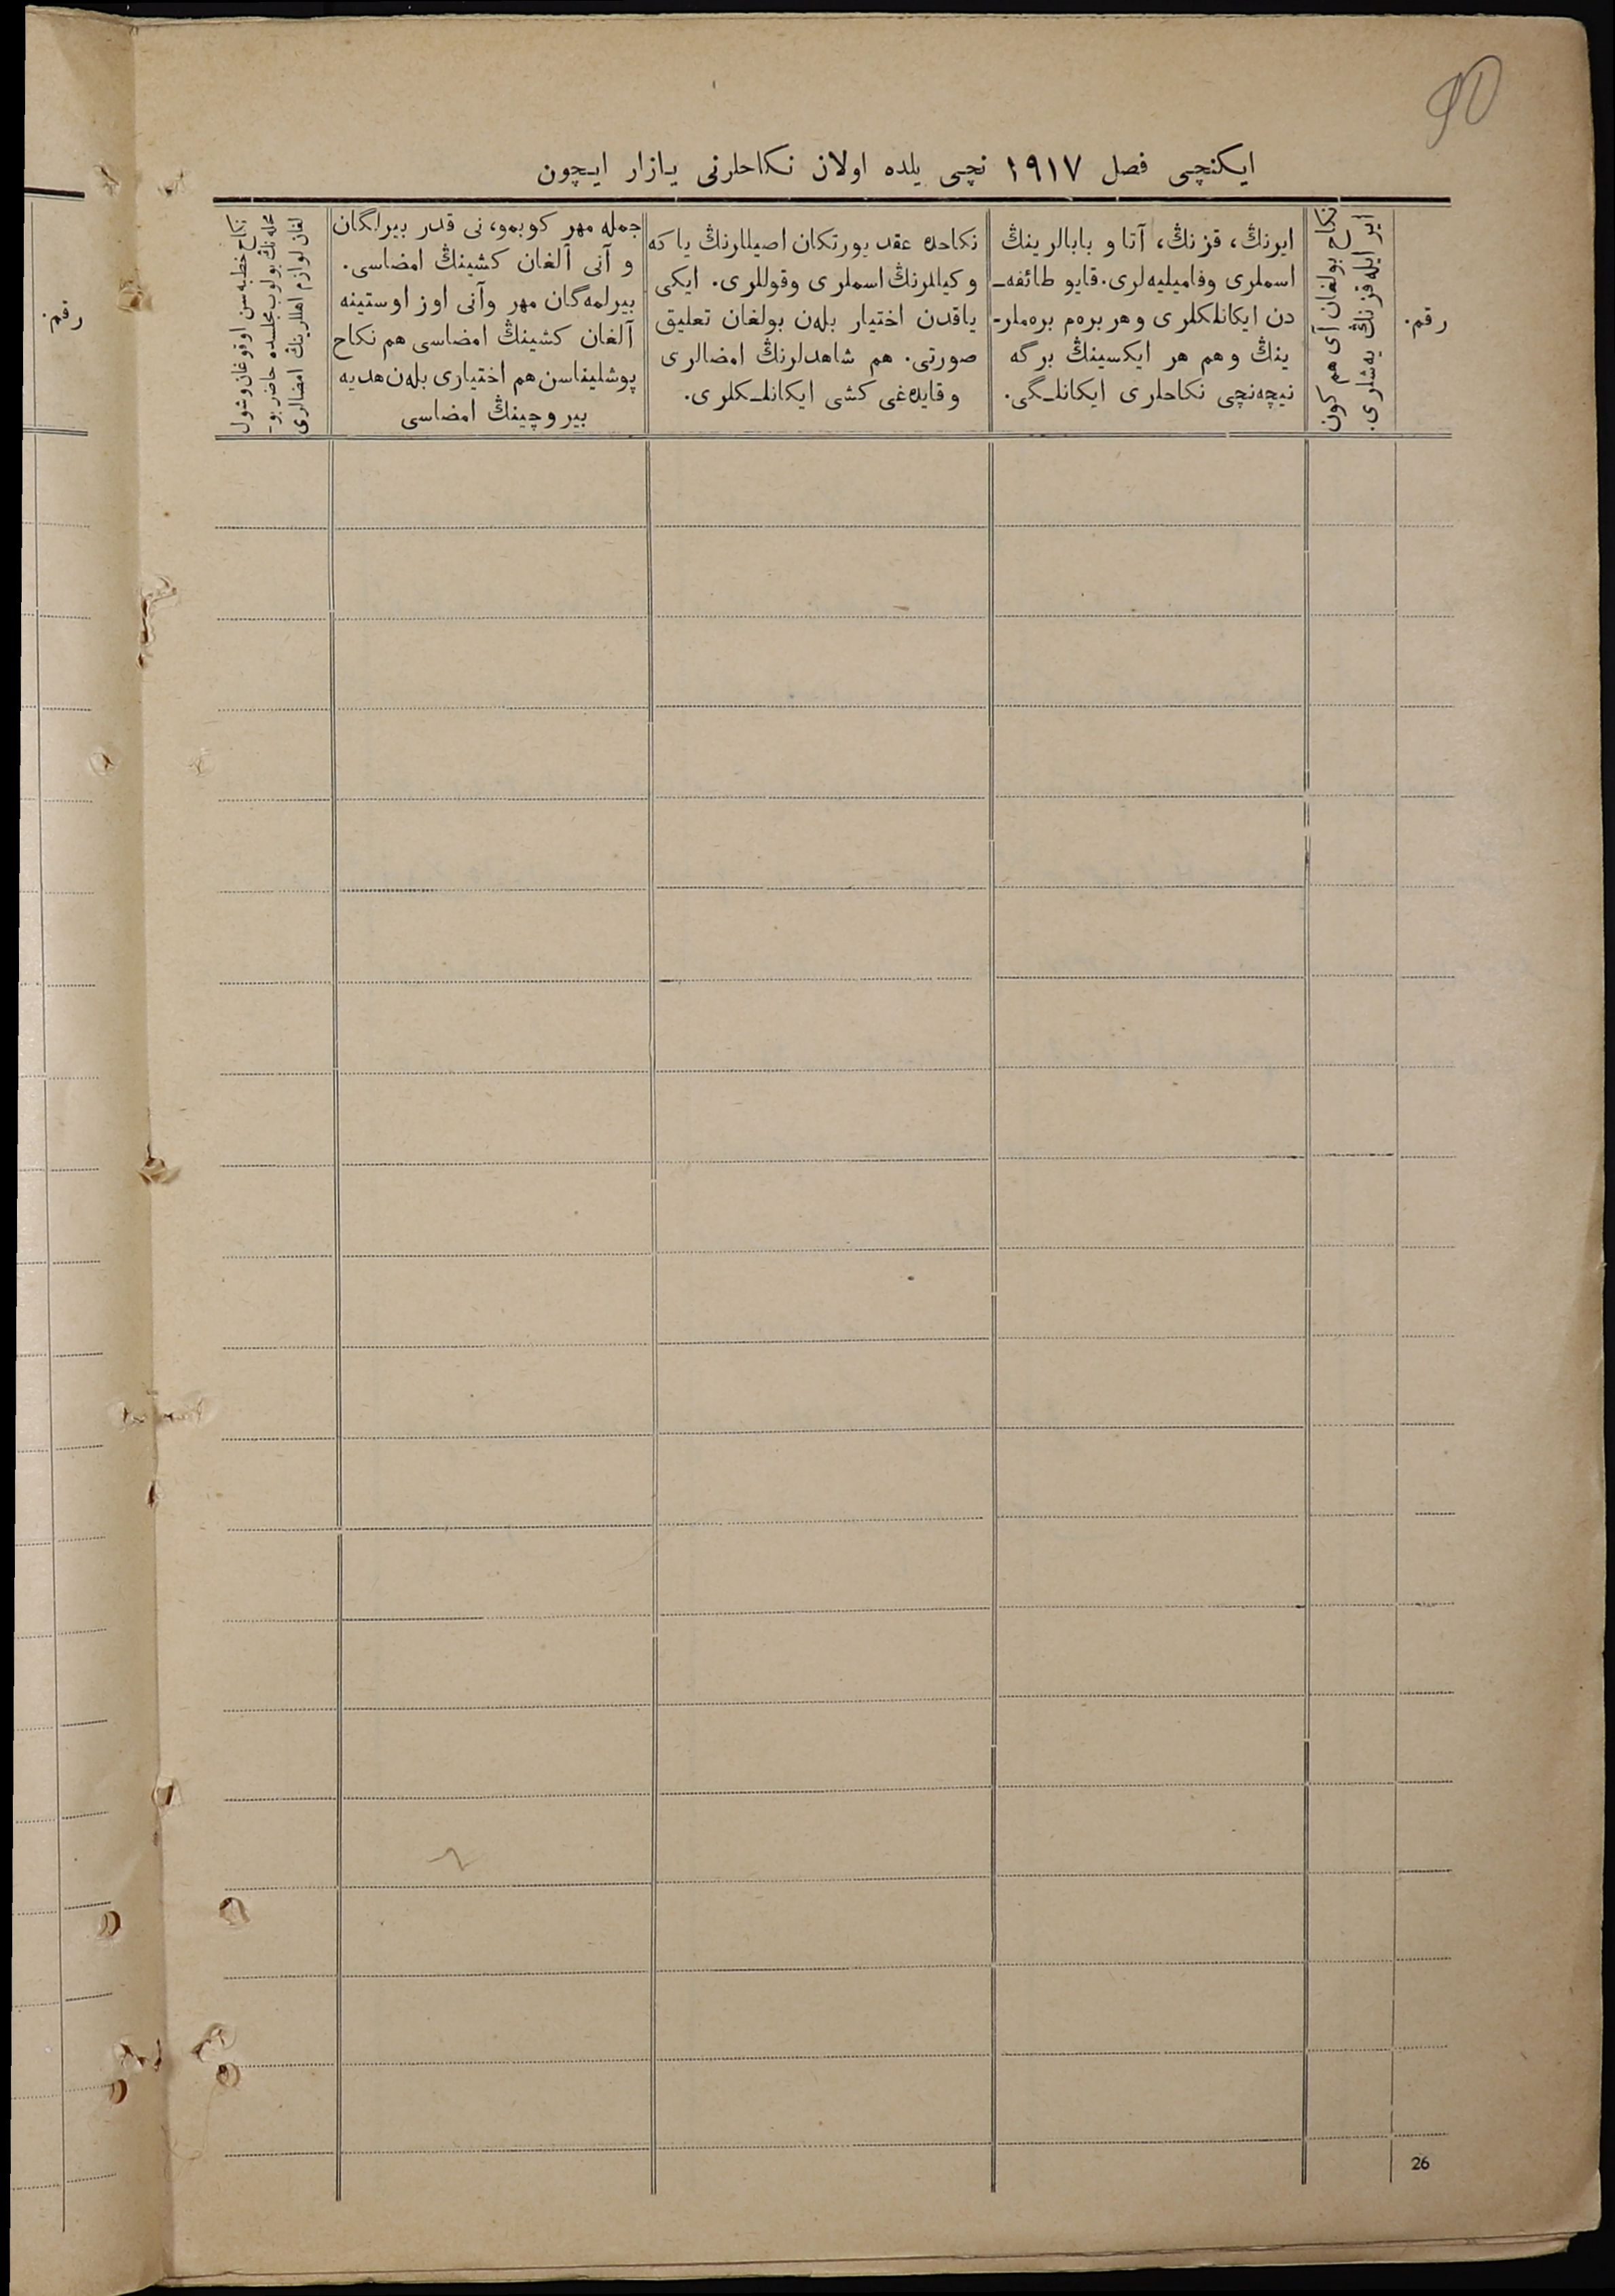 90
ایكنچی فصل ١٩١٧ نچی یلده اولان نكاحلرنی یازار ایچون
رقم.
نكاح بولغان آی هم كون
ایر ایله قزنڭ یه‌شلری.
ایرنڭ، قزنڭ، آتا و بابالرینڭ
اسملری وفامیلیه‌لری. قایو طائفه‌ـ
دن ایكانلكلری وهر بره‌م بره‌ملرـ
ینڭ وهم هر ایكسینڭ برگه
نیچه‌نچی نكاحلری ایكانلـگی.
نكاحده عقد یورتكان اصیللرنڭ یا كه
وكیللرنڭ اسملری وقوللری. ایكی
یاقدن اختیار بله‌ن بولغان تعلیق
صورتی. هم شاهدلرنڭ امضالری
وقایده‌غی كشی ایكانلـكلری.
جمله مهر كوبمو، نی قدر بیرلگان
و آنی آلغان كشینڭ امضاسی.
بیرلمه‌گان مهر وآنی اوز اوستینه
آلغان كشینڭ امضاسی هم نكاح
پوشلیناسن هم اختیاری بله‌ن هدیه
بیروچینڭ امضاسی
نكاح خطبه‌سن اوقوغان وشول
محله‌نڭ بولوب مجلسده حاضر بوـ
لغان لوازم اهللرینڭ امضالری
رقم.
26